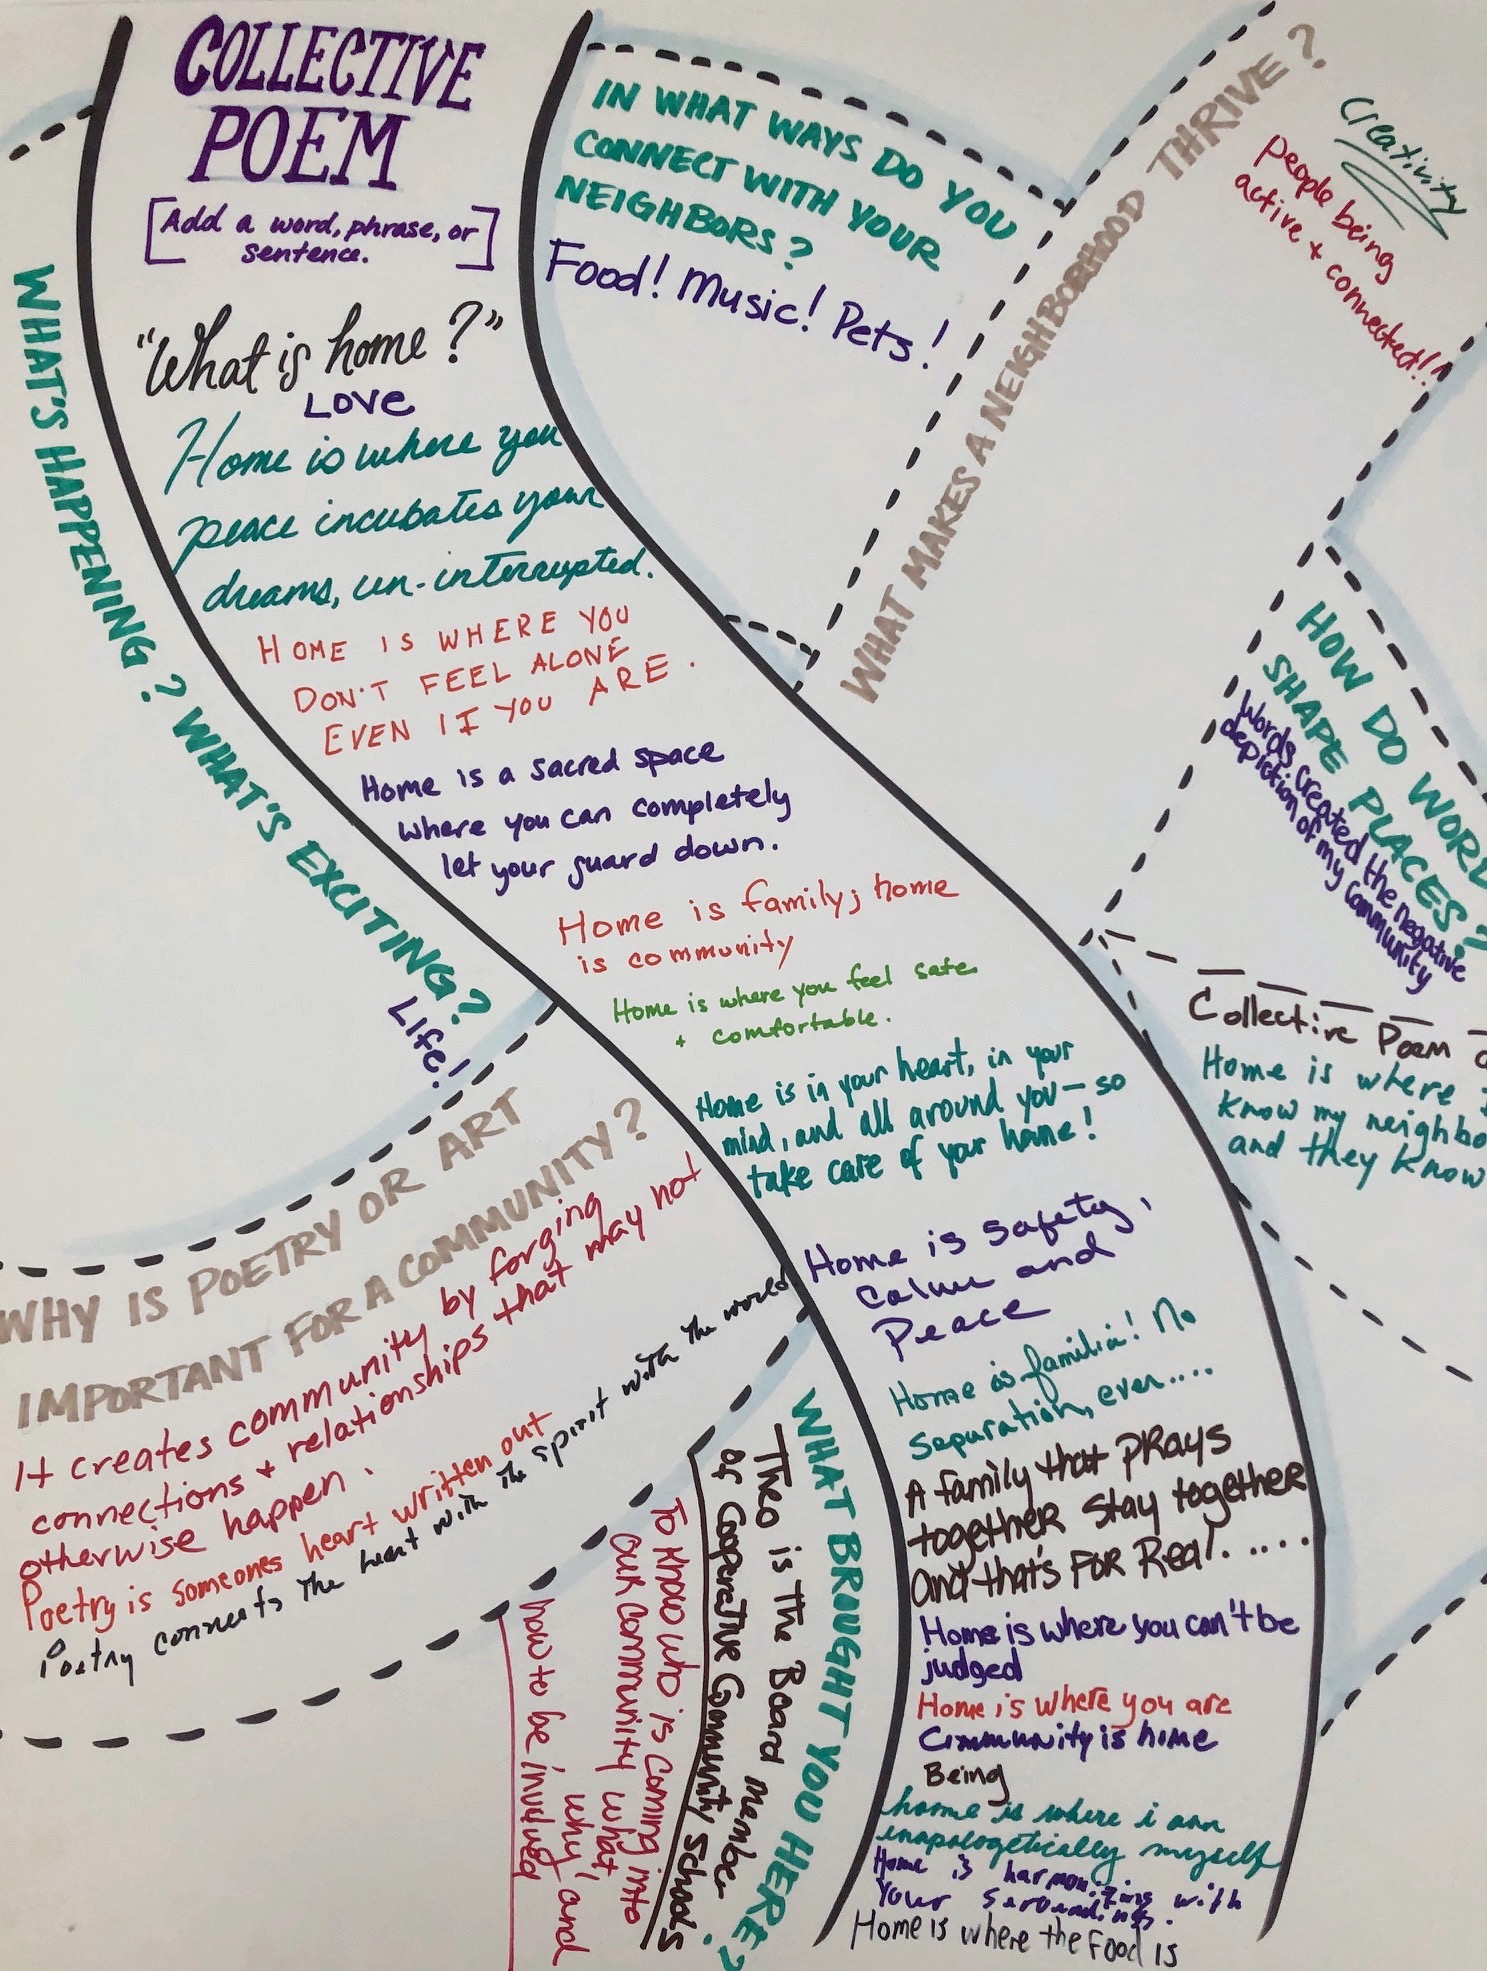 COLLECTIVE
POEM
[Add a word, phrase, or
sentence.]
"What is home?"
LOVE
Home is where you
peace incubates your
dreams, un-interrupted.
HOME IS WHERE YOU
DON'T FEEL ALONE
EVEN IF YOU ARE.
Home is a sacred space
where you can completely
let your guard down.
Home is family; home
is community
Home is where you feel safe
+ comfortable.
Home is in your heart, in your
mind, and all around you — so
take care of your home!
Home is safety,
Calm and
Peace
Home is familia! No
Separation, ever....
A family that PRAYS
together stay together
and that's FOR Real......
Home is where you can't be
judged
Home is where you are
Community is home
Being
home is where i am
unapologetically myself
Home is harmonizing with
Your
Home is where the food is
IN WHAT WAYS DO YOU
CONNECT WITH YOUR
NEIGHBORS?
Food! Music! Pets!
WHAT MAKES A NEIGHBORHOOD THRIVE?
Creativity
people being
active + connected!!
HOW DO WORD
SHAPE PLACES?
Words created the negative
depiction of my community
Collective Poem
Home is where I
know my neighbo
and they know
WHAT'S HAPPENING? WHAT'S EXCITING?
Life!
WHY IS POETRY OR ART
IMPORTANT FOR A COMMUNITY?
It creates community by forging
connections + relationships that may not
otherwise happen.
Poetry is someones heart written out
Poetry connects the heart with the spirit with the world
WHAT BROUGHT YOU HERE?
Theo is The Board member
of Cooperative Community Schools
To know who is coming into
our community what,
why, and
how to be involved